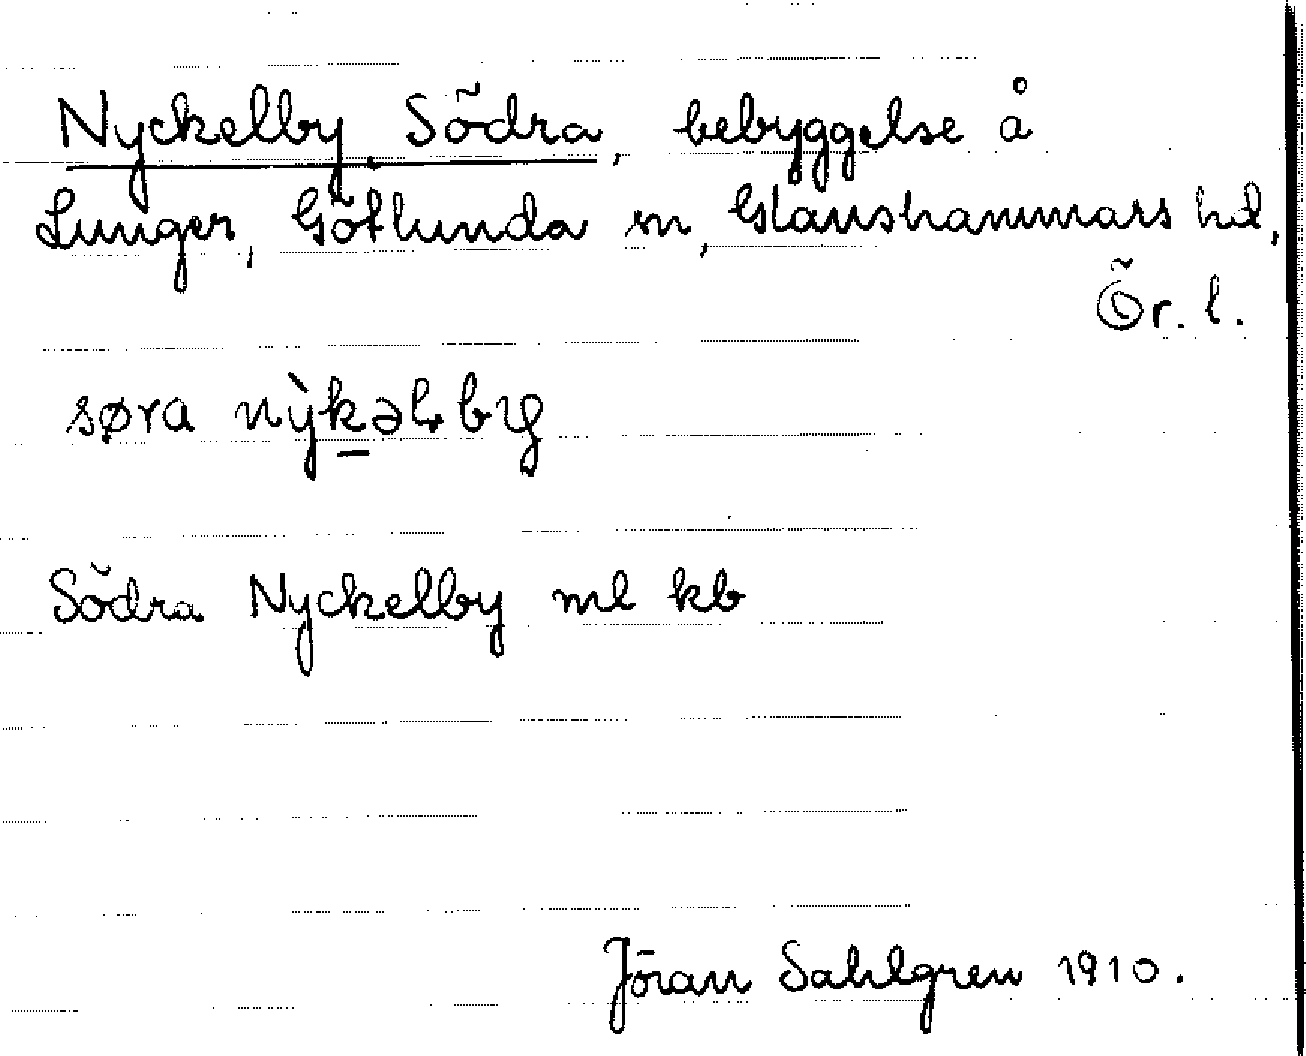 Nyckelby, Södra, bebyggelse å
Lunger, Götlunda sn, Glanshammars hd,
Ör. l.
søra nỳk̲əl by
Södra Nyckelby ml kb
Jöran Sahlgren 1910.